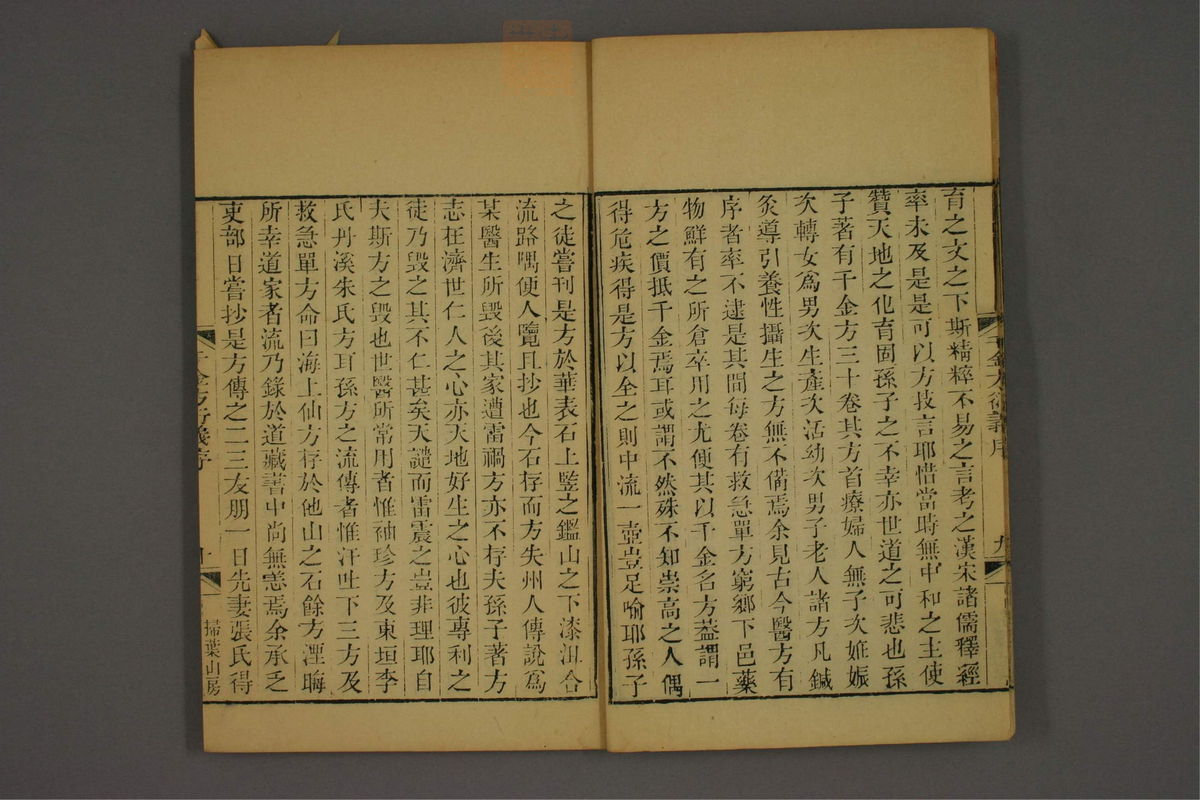 育之文之下斯精粹不易之言考之漢宋諸儒釋經
率未及是是可以方技言耶惜當時無中和之主使
贊天地之化育固孫子之不幸亦世道之可悲也孫
子著有千金方三十卷其方首療婦人無子次姙娠
次轉女爲男次生產次活幼次男子老人諸方凡鍼
灸導引養性攝生之方無不備焉余見古今醫方有
序者率不逮是其間每卷有救急單方窮鄉下邑藥
物鮮有之所倉卒用之尤便其以千金名方葢謂一
方之價抵千金焉耳或謂不然殊不知崇高之人偶
得危疾得是方以全之則中流一壺豈足喻耶孫子
千金方衍義序
九
之徒嘗刊是方於華表石上竪之鑑山之下漆沮合
流路隅便人覽且抄也今石存而方失州人傳說爲
某醫生所毀後其家遭雷禍方亦不存夫孫子著方
志在濟世仁人之心亦天地好生之心也彼專利之
徒乃毀之其不仁甚矣天譴而雷震之豈非理耶自
夫斯方之毀也世醫所常用者惟袖珍方及東垣李
氏丹溪朱氏方耳孫方之流傳者惟汗吐下三方及
救急單方命曰海上仙方存於他山之石餘方湮晦
所幸道家者流乃錄於道藏書中尚無恙焉余承乏
吏部日嘗抄是方傳之二三友朋一日先妻張氏得
千金方衍義序
掃葉山房